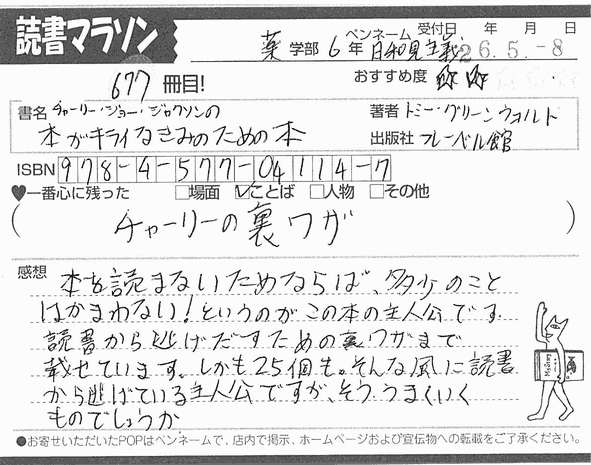 読書マラソン
薬 学部 6 年 ペンネーム 日和見主義 受付日 年 月 日
26.5.-8
677 冊目! おすすめ度
書名 チャーリー・ジョー・ジャクソンの
本がキライなきみのための本
著者 トミー・グリーンウォルド
出版社 フレーベル館
ISBN 978-4-577-04114-7
♥一番心に残った □場面 ☑ことば □人物 □その他
( チャーリーの裏ワザ )
感想 本を読まないためならば、多少のこと
はかまわない!というのがこの本の主人公です
読書から逃げだすための裏ワザまで
載せています。しかも25個も。そんな風に読書
から逃げている主人公ですが、そう、うまくいく
ものでしょうか
●お寄せいただいたPOPはペンネームで、店内で掲示、ホームページおよび宣伝物への転載をご了承ください。